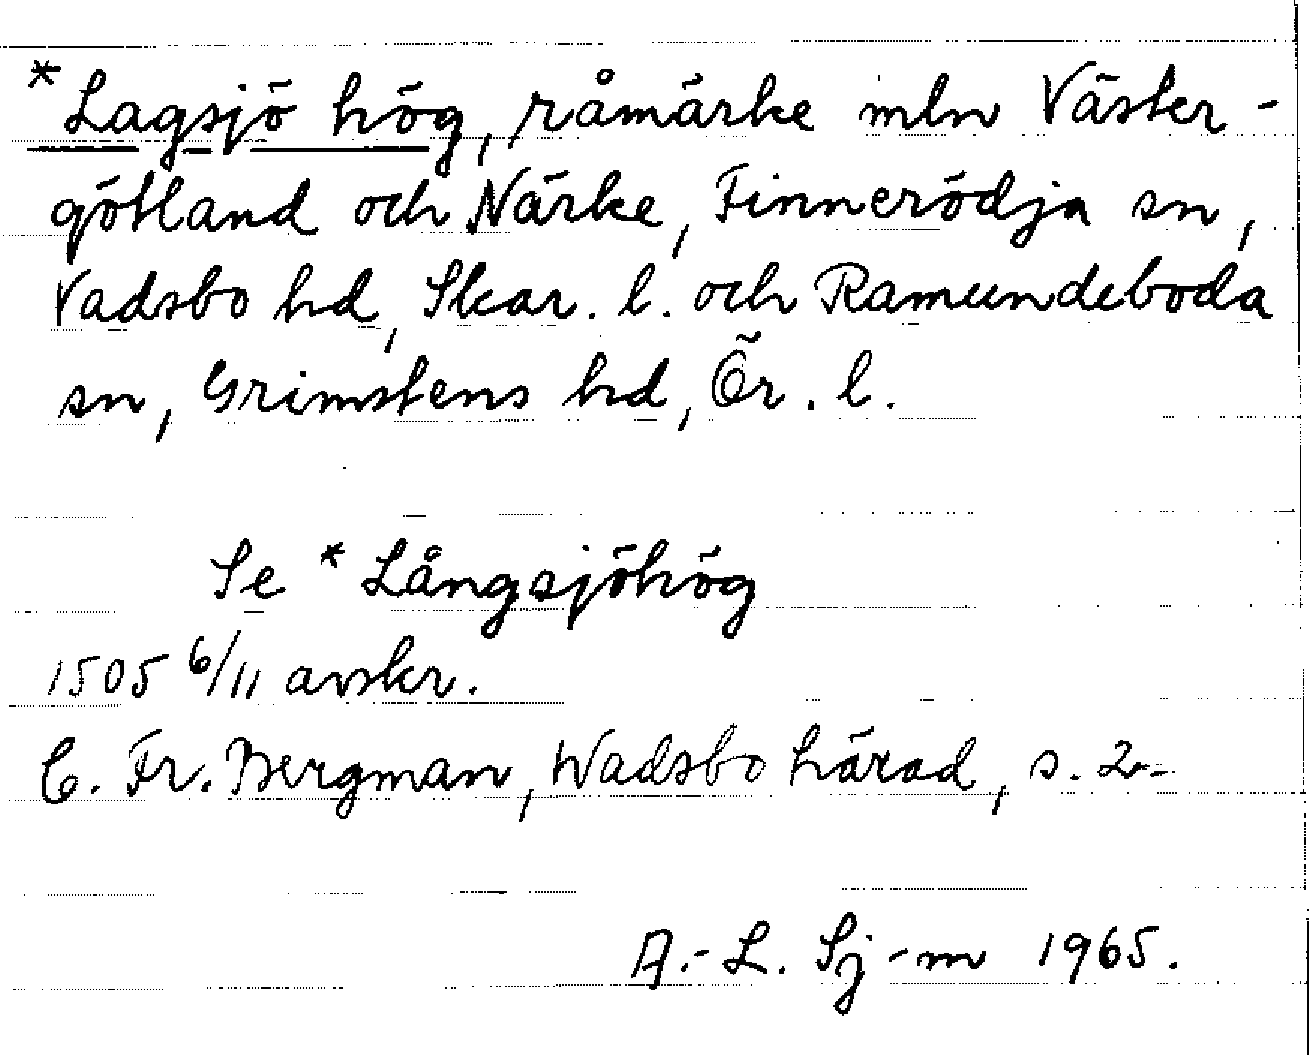 *Lagsjö hög, råmärke mln Väster-
götland och Närke, Finnerödja sn,
Vadsbo hd, Skar. l. och Ramundeboda
sn, Grimstens hd, Ör. l.
Se *Långsjöhög
1505 6/11 avskr.
C. Fr. Bergman, Wadsbo härad, s. 2.
A.-L. Sj-m 1965.